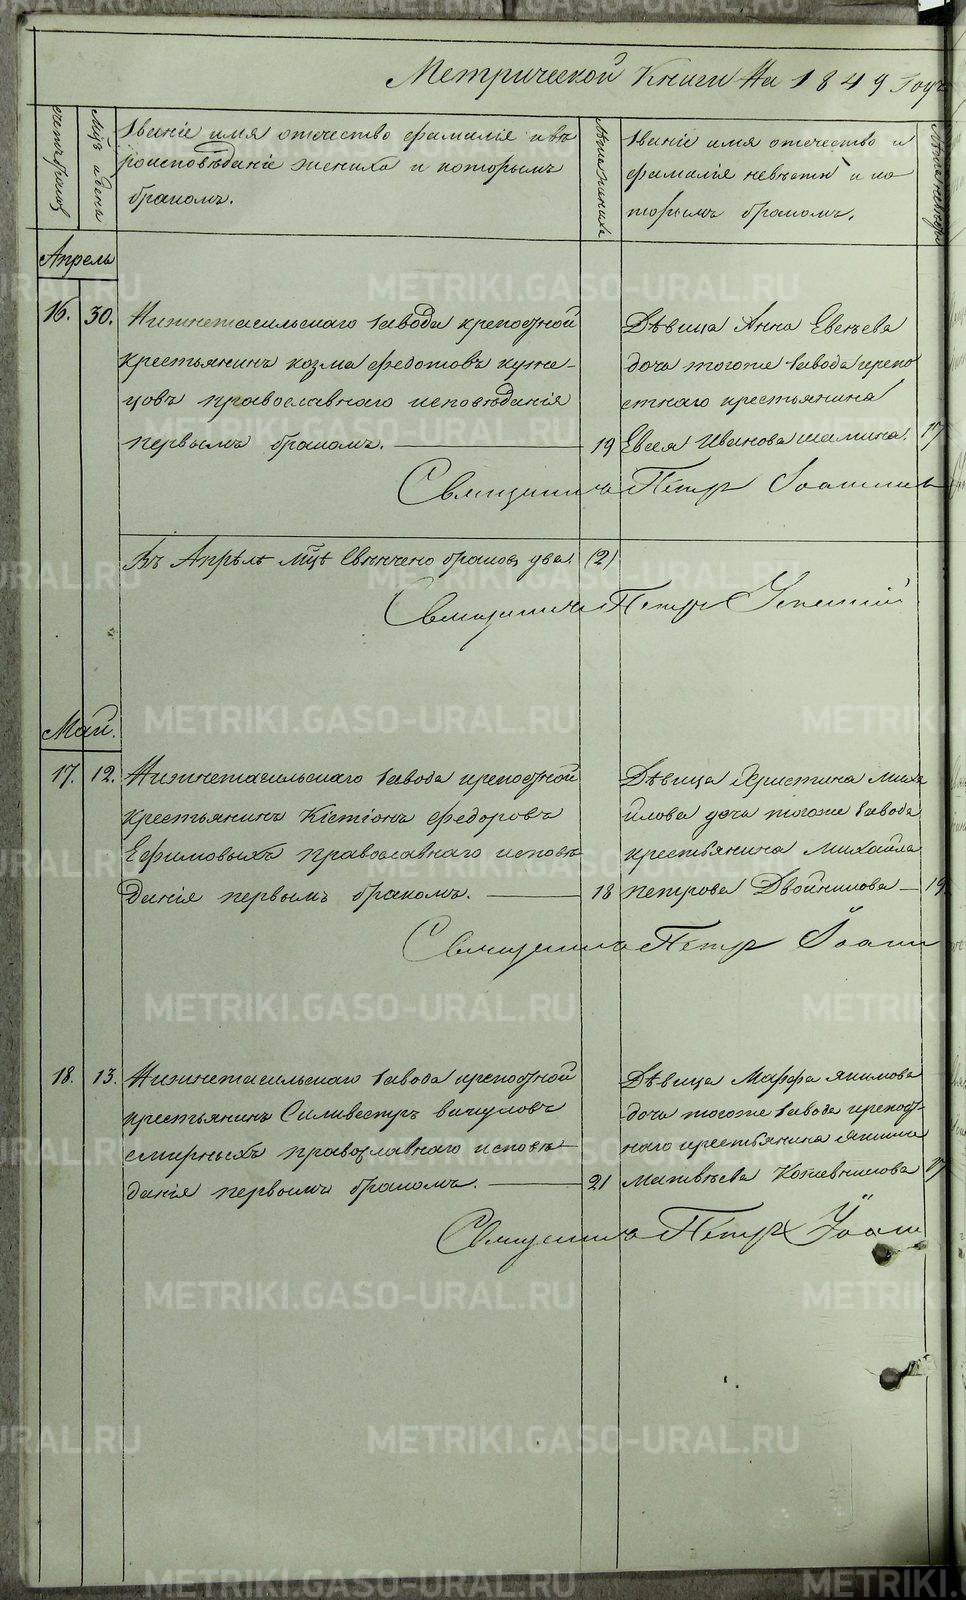 Метрической Книги На 1849 Годъ
Счетъ браковъ
Мѣсяцъ и день
Званіе имя отечество фамилія и вѣ
роисповѣданіе жениха и которымъ
бракомъ.
Лѣта жениха
Званіе имя отечество и
фамилія невѣсты и ко
торымъ бракомъ.
Лѣта невѣсты
Апрель
16. 30. Нижнетагильскаго завода крепостной
крестьянинъ козма федотовъ кузне-
цовъ православнаго исповѣданія
первымъ бракомъ. 19
Дѣвица Анна Евсѣева
дочь тогоже завода крепо
стнаго крестьянина
Евсея Иванова шамина. 17
Священникъ Петръ
Въ Апрѣлѣ Мцѣ Свѣнчено браковъ два. (2)
Священникъ Петръ
Май.
17. 12. Нижнетагильскаго завода крепостной
крестьянинъ Кістіонъ федоровъ
Ефимовыхъ православнаго исповѣ
данія первымъ бракомъ. 18
Дѣвица Христина Миха
йлова дочь тогоже завода
крестьянина Михайла
петрова Двойникова 19
Священникъ Петръ
18. 13. Нижнетагильскаго завода крепостной
крестьянинъ Силивестръ викуловъ
смирныхъ православнаго исповѣ
данія первымъ бракомъ. 21
Дѣвица Марфа якимова
дочь тогоже завода крепост
наго крестьянина якима
Матвѣева Кожевникова 17
Священникъ Петръ
METRIKI.GASO-URAL.RU